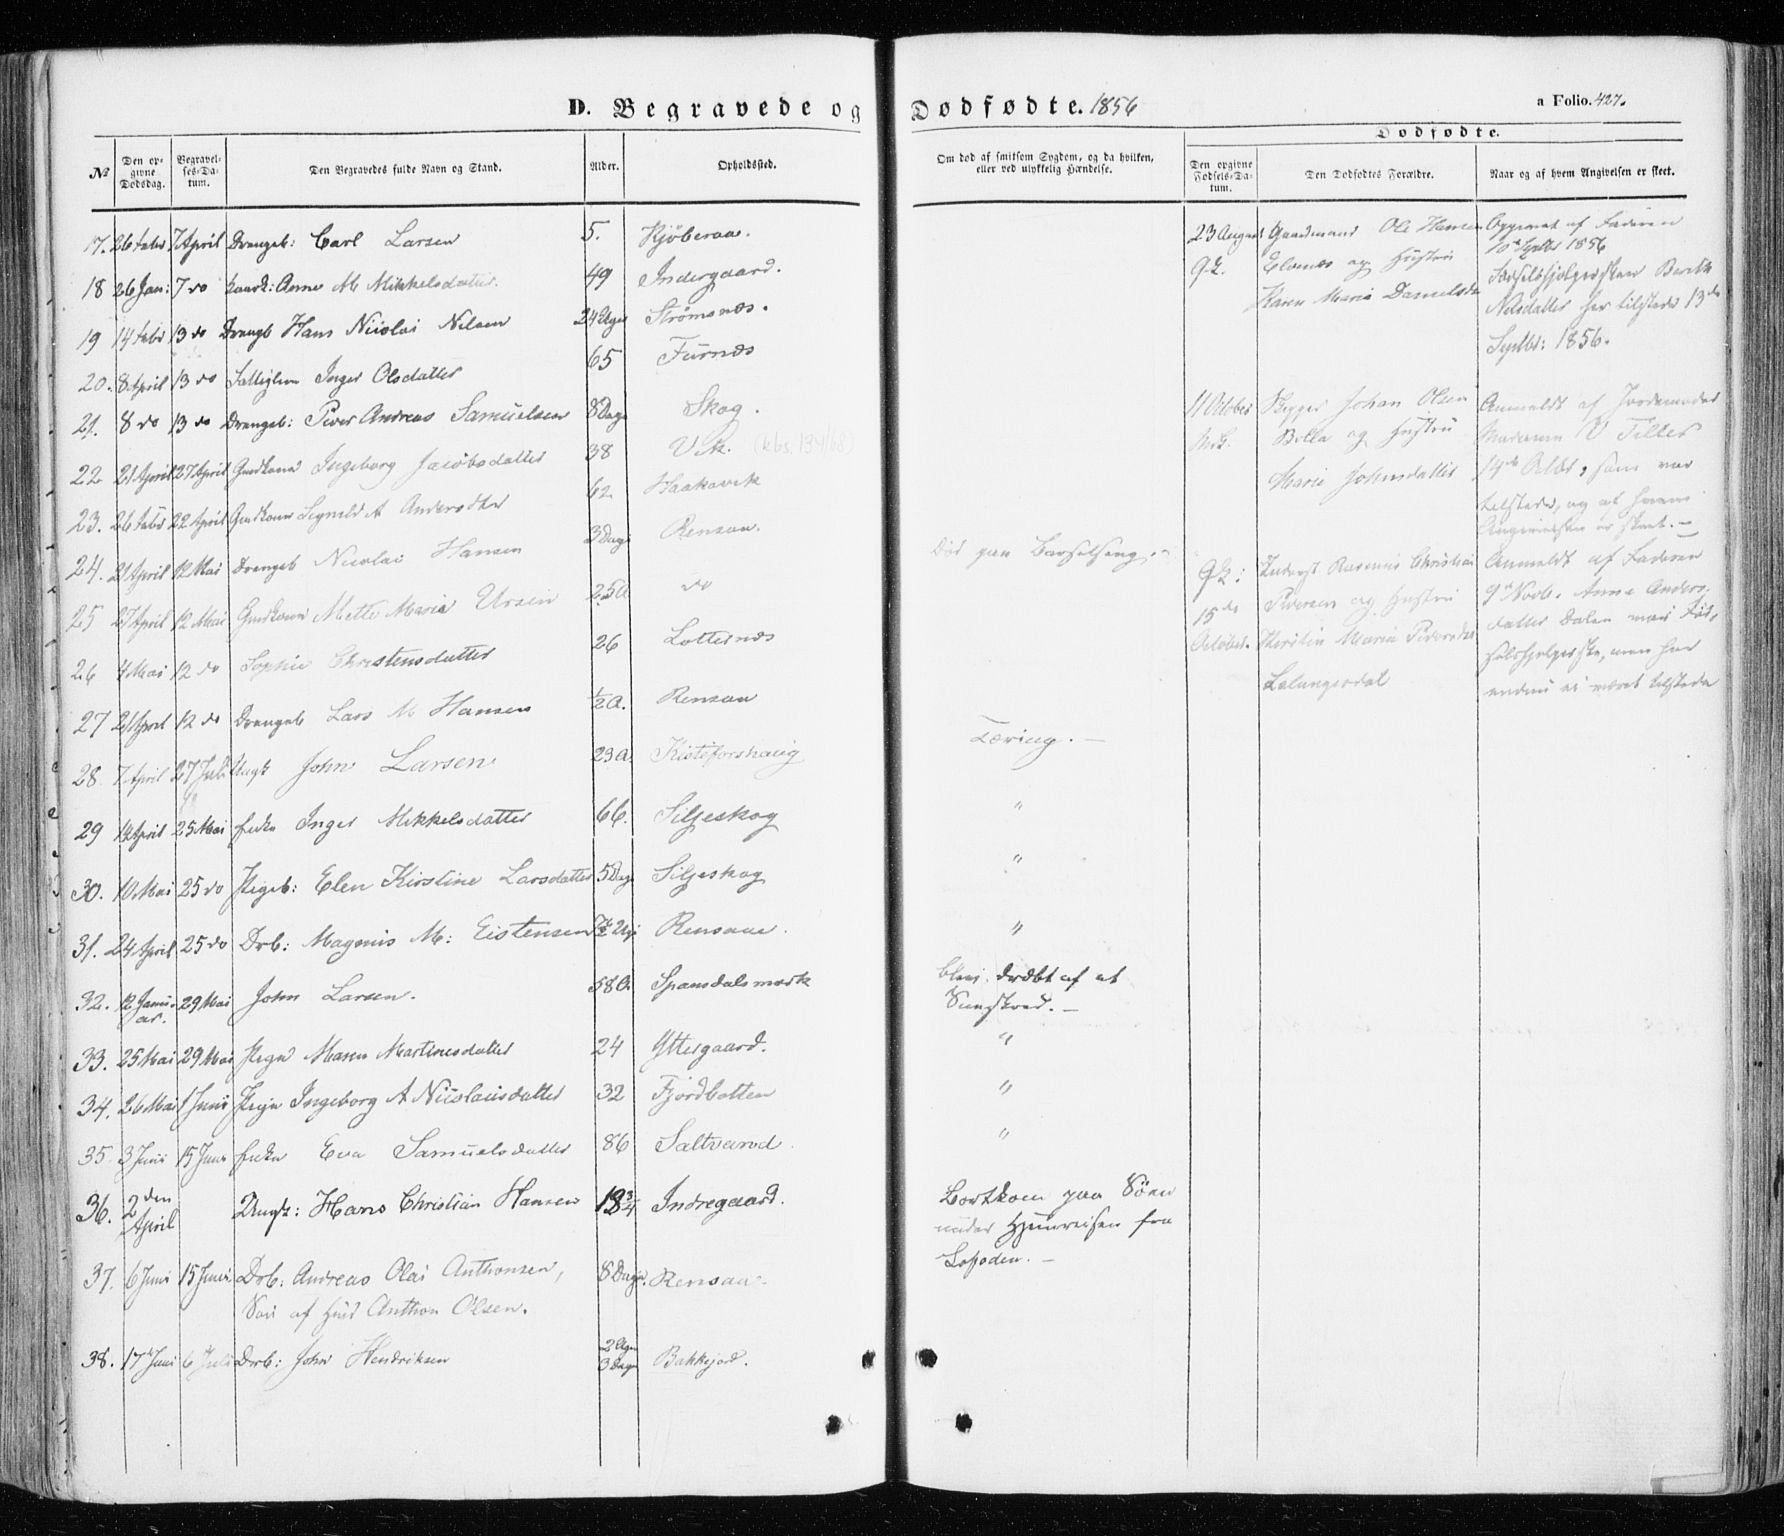 D. Begravede og Dødfødte. 1856
a Folio. 427.
Dødfødte.
№ Den opgivne Dødsdag. Begravelses-Datum. Den Begravedes fulde Navn og Stand. Alder. Opholdssted. Om død af smitsom Sygdom, og da hvilken, eller ved ulykkelig Hændelse. Den opgivne Fødsels-Datum. Den Dødfødtes Forældre. Naar og af hvem Angivelsen er skeet.
17. 26 Febr 7 April Drengeb: Carl Larsen 5. Kjøberaa.
18 26 Jan: 7 do Anne M Mikkelsdatter. 49 Indergaard.
19 14 Febr 13 do Drengb Hans Nicolai Nilsen 24 Uger Strømsnæs.
20. 8 April 13 do Inger Olsdatter 65 Furnæs
21. 8 do 13 do Drengeb: Peder Andreas Samuelsen 8 Dage Skog.
22 21 April 27 April Gmdkone Ingeborg Jacobsdatter 38 Vik. (kbs. 134/68)
23. 26 Febr 22 April Gmdkone A Andersdtr 62 Haakavik
24. 21 April 12 Mai Drengeb Nicolai Hansen 3 Dage Rensaa.
25 27 April 12 Mai Gmdkone Mette Maria Ursin 25 A do Död paa Barselseng.
26 4 Mai 12 do Sophie Christensdatter 26 Lotternæs
27 21 April 12 do Drengeb Lars M Hansen ½ A. Rensaa
28. 7 April 27 Juli Ungk John Larsen 23 A. Kisteforshaug Tæring. —
29 14 April 25 Mai Enke Inger Mikkelsdatter 66. Siljeskog "
30. 10 Mai 25 do Pigeb: Elen Kirstine Larsdatter 5 Dage Siljeskog "
31. 24 April 25 do Drb: Magnus M: Eistensen Uger Rensaae. "
32. 12 Januar. 29 Mai John Larsen. 58 A. Spansdalsmark blev dræbt af et
Sneeskred. —
33. 25 Mai 29 Mai Pige Maren Martinesdatter 24 Yttergaard. "
34. 26 Mai 1 Juni Pige Ingeborg A Nicolaisdatter 32 Fjordbotten "
35. 3 Juni 15 Juni Enke Eva Samuelsdatter 86 Saltvand. "
36. 2den April Ungk: Hans Christian Hansen 18¾ Indregaard. Bortkom paa Søen
under Hjemreisen fra
Lofoden. —
37. 6 Juni 15 Juni Drb: Andreas Olai Anthonsen, 8 Dage. Rensaa.
Søn af Anthon Olsen.
38. 17 Juni 6 Juli Drb: John Hendriksen 2 Uger 3 Dage Bakkejord.
23 August Gaardmand Ole Hansen
Elvenes og Hustru
Karen Maria Danielsdtr
af Faderen
10de Septbr 1856
Fødselshjelpersken Berith
Nilsdatter her tilstede 13de
Septbr: 1856.
11 October Johan Olsen
Bolla og Hustru
Marie Johnsdatter
Anmeldt af Jordemoder
V Tiller
14de Octbr, som var
tilstede, og at hvem
Angivelsen er skeet. —
15de October. Inderst Rasmus Christian
Iversen og Hustru
Kirstin Maria
Anmeldt af Faderen
9de Novb. Anna Anders-
datter Dalen var Fød-
selshjelperske, men har
endnu ei været tilstede